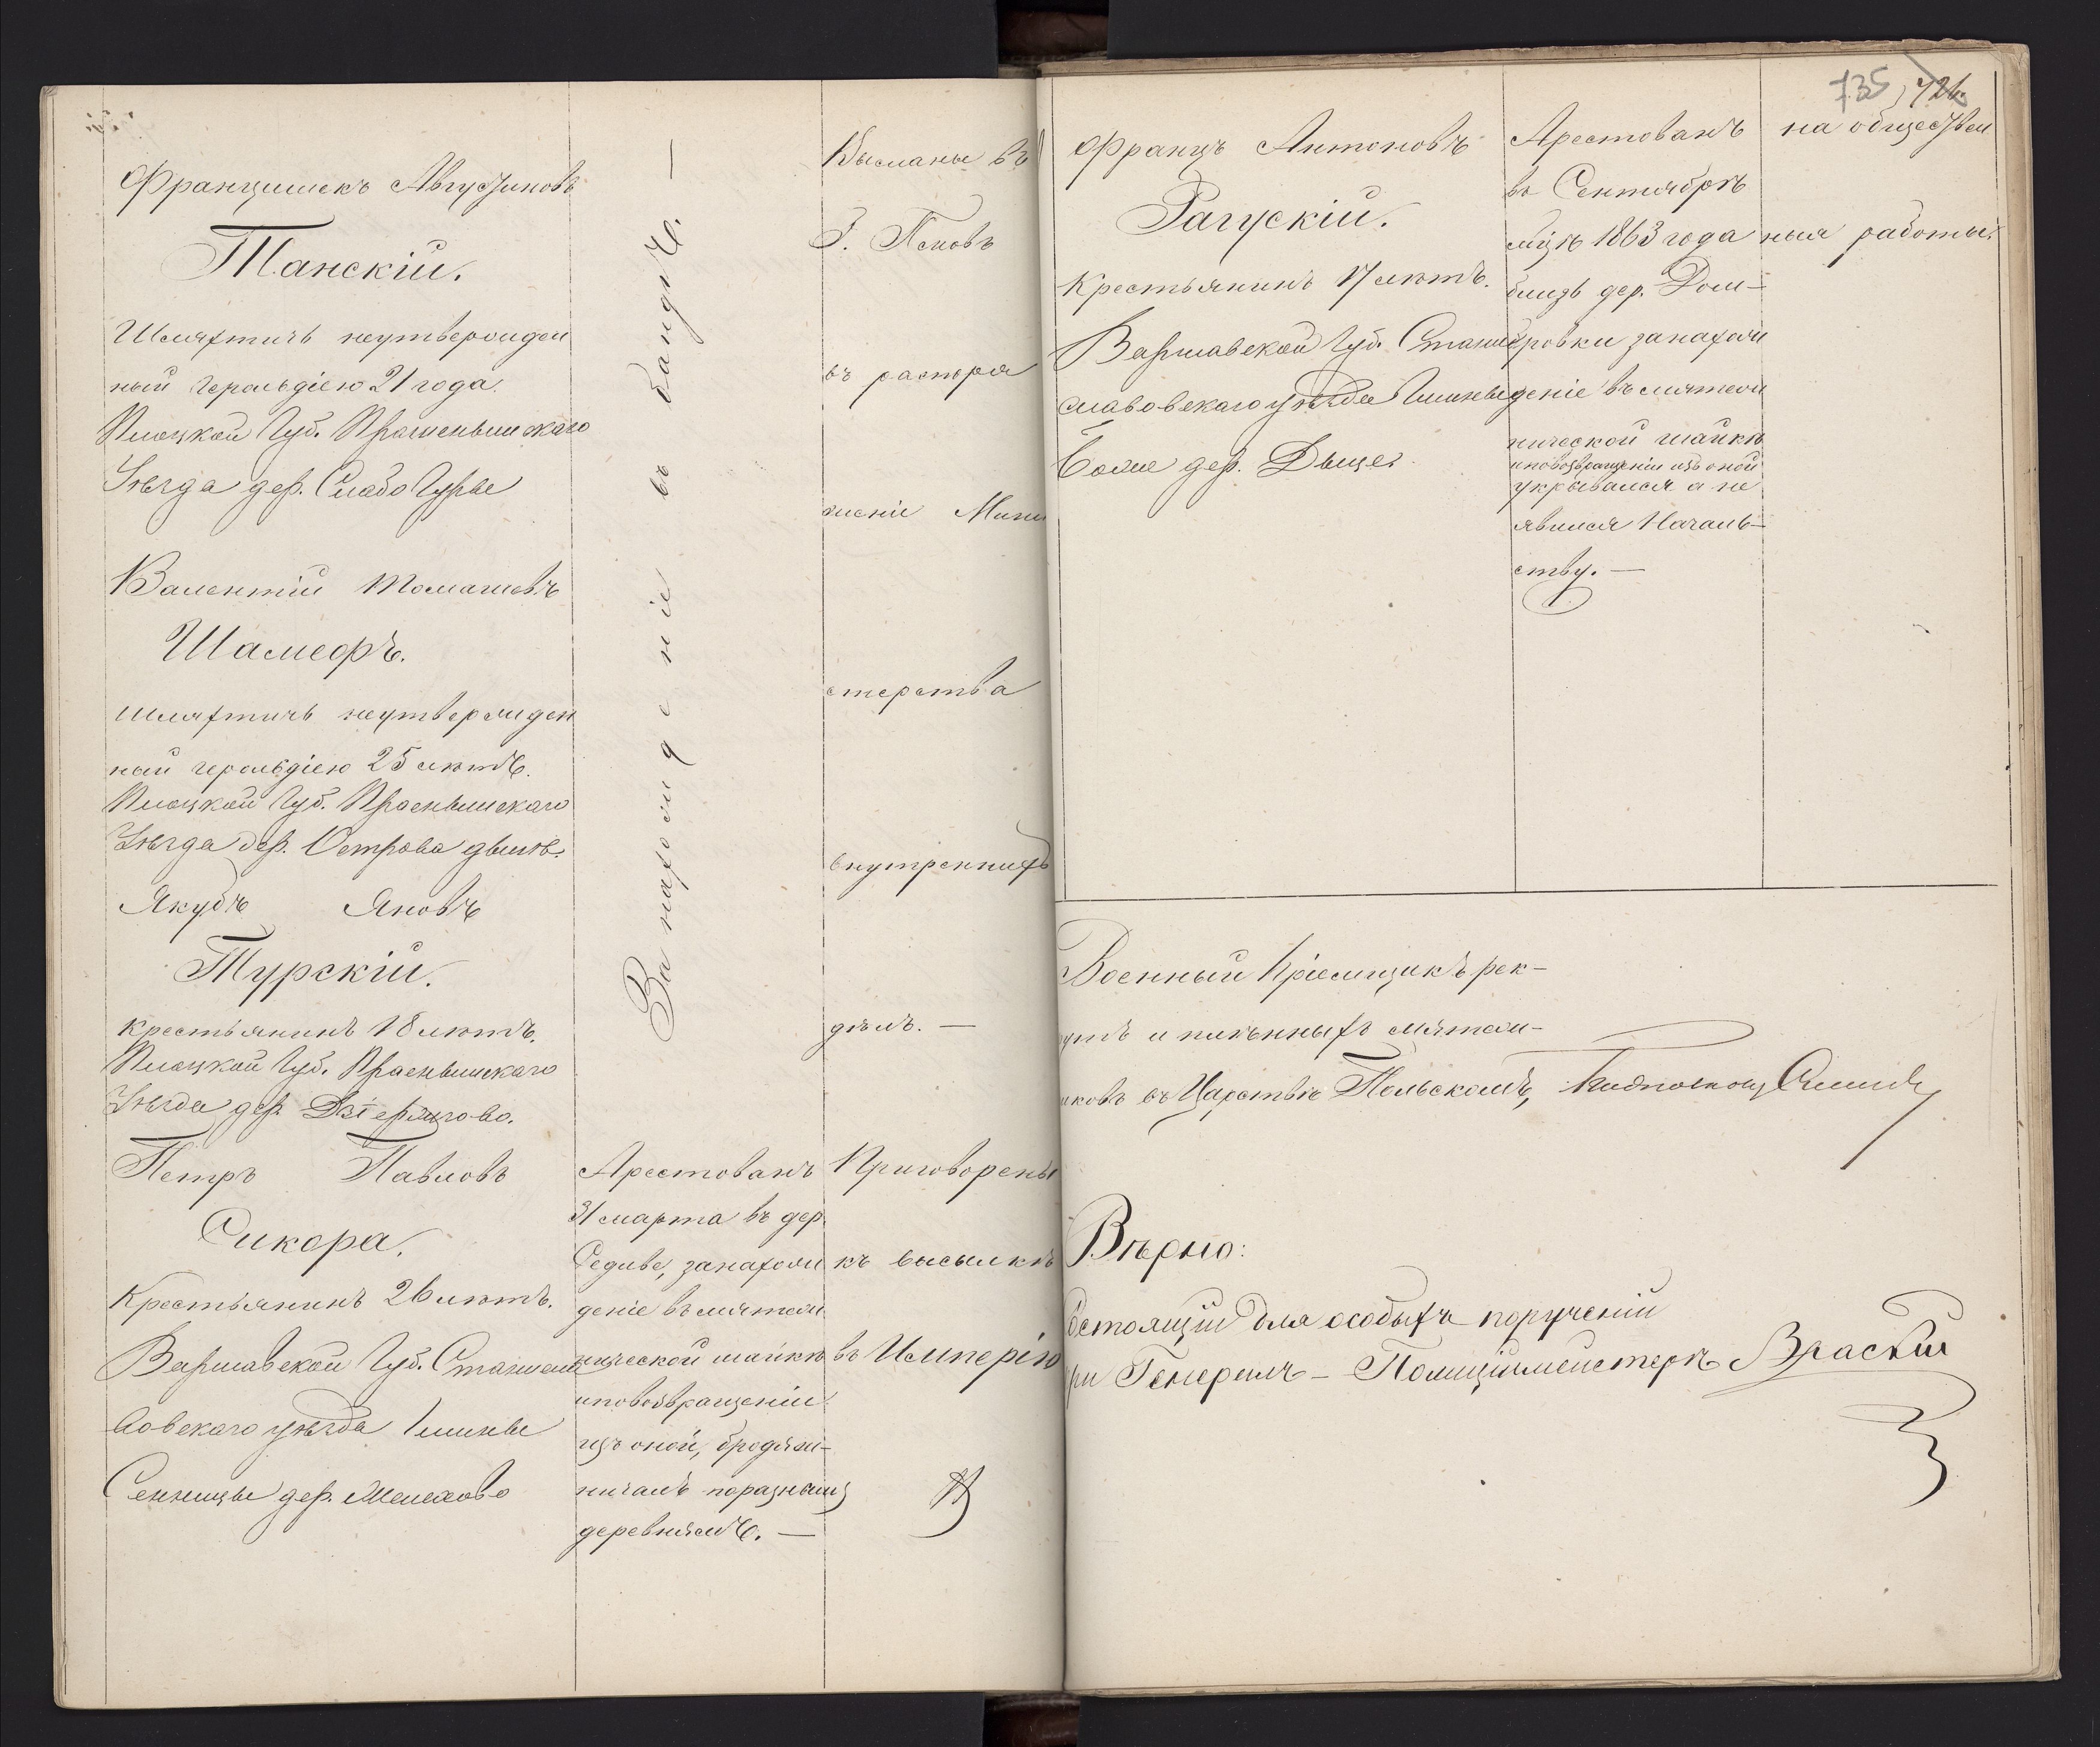 Францишекъ Августиновъ
Танскій.
Шляхтичъ неутвержден
ный герольдіею 21 года.
Плоцкой Губ. Прасныш скаго
Уѣзда дер. Слабо Гурые
Валентій Томашовъ
ШамеФръ.
шляхтичъ неутвержден
ный герольдіею 25 лѣтъ.
Плоцкой Губ. Праснышскаго
Уѣзда дер. Острова
Якубъ Яновъ
Турскій.
крестьянинъ 18 лѣтъ.
Плоцкой Губ. Праснышскаго
Уѣзда дер.
Петръ Павловъ
Сикора.
Крестьянинъ 26 лѣтъ.
Варшавской Губ. Станисла
вовскаго уѣзда Гмины
Сенницы дер.
За нахожденіе въ бандѣ. —
Арестованъ
31 марта въ дер.
Седиве, занахож
деніе въ мятеж
нической шайкѣ
и повозвращеніи
изъ оной, бродяж-
ничалъ поразнымъ
деревнямъ. —
Высланы въ
Г. Псковъ
въ распоря
женіе Мини
стерства
внутреннихъ
дѣлъ. —
Приговорены
къ высылкѣ
въ Имперію
735 726.
Францъ Антоновъ
Рагускій.
Крестьянинъ 17 лѣтъ.
Варшавской Губ. Стани
славовскаго уѣзда Гмины
дер. Дыце.
Арестованъ
въ Сентябрѣ
мцѣ 1863 года
близь дер. Дом-
бровки занахож
деніе въ мятеж
нической шайкѣ
и повозвращеніи изъ оной
укрывался а не
явился Началь-
ству. —
на обществен
ныя работы.
Военный Пріемщикъ рек-
рутъ и плѣнныхъ мятеж-
никовъ въ Царствѣ Польскомъ,
Вѣрно:
Состоящій для особыхъ порученій
при Генералъ-Полиціймейстерѣ Враскій